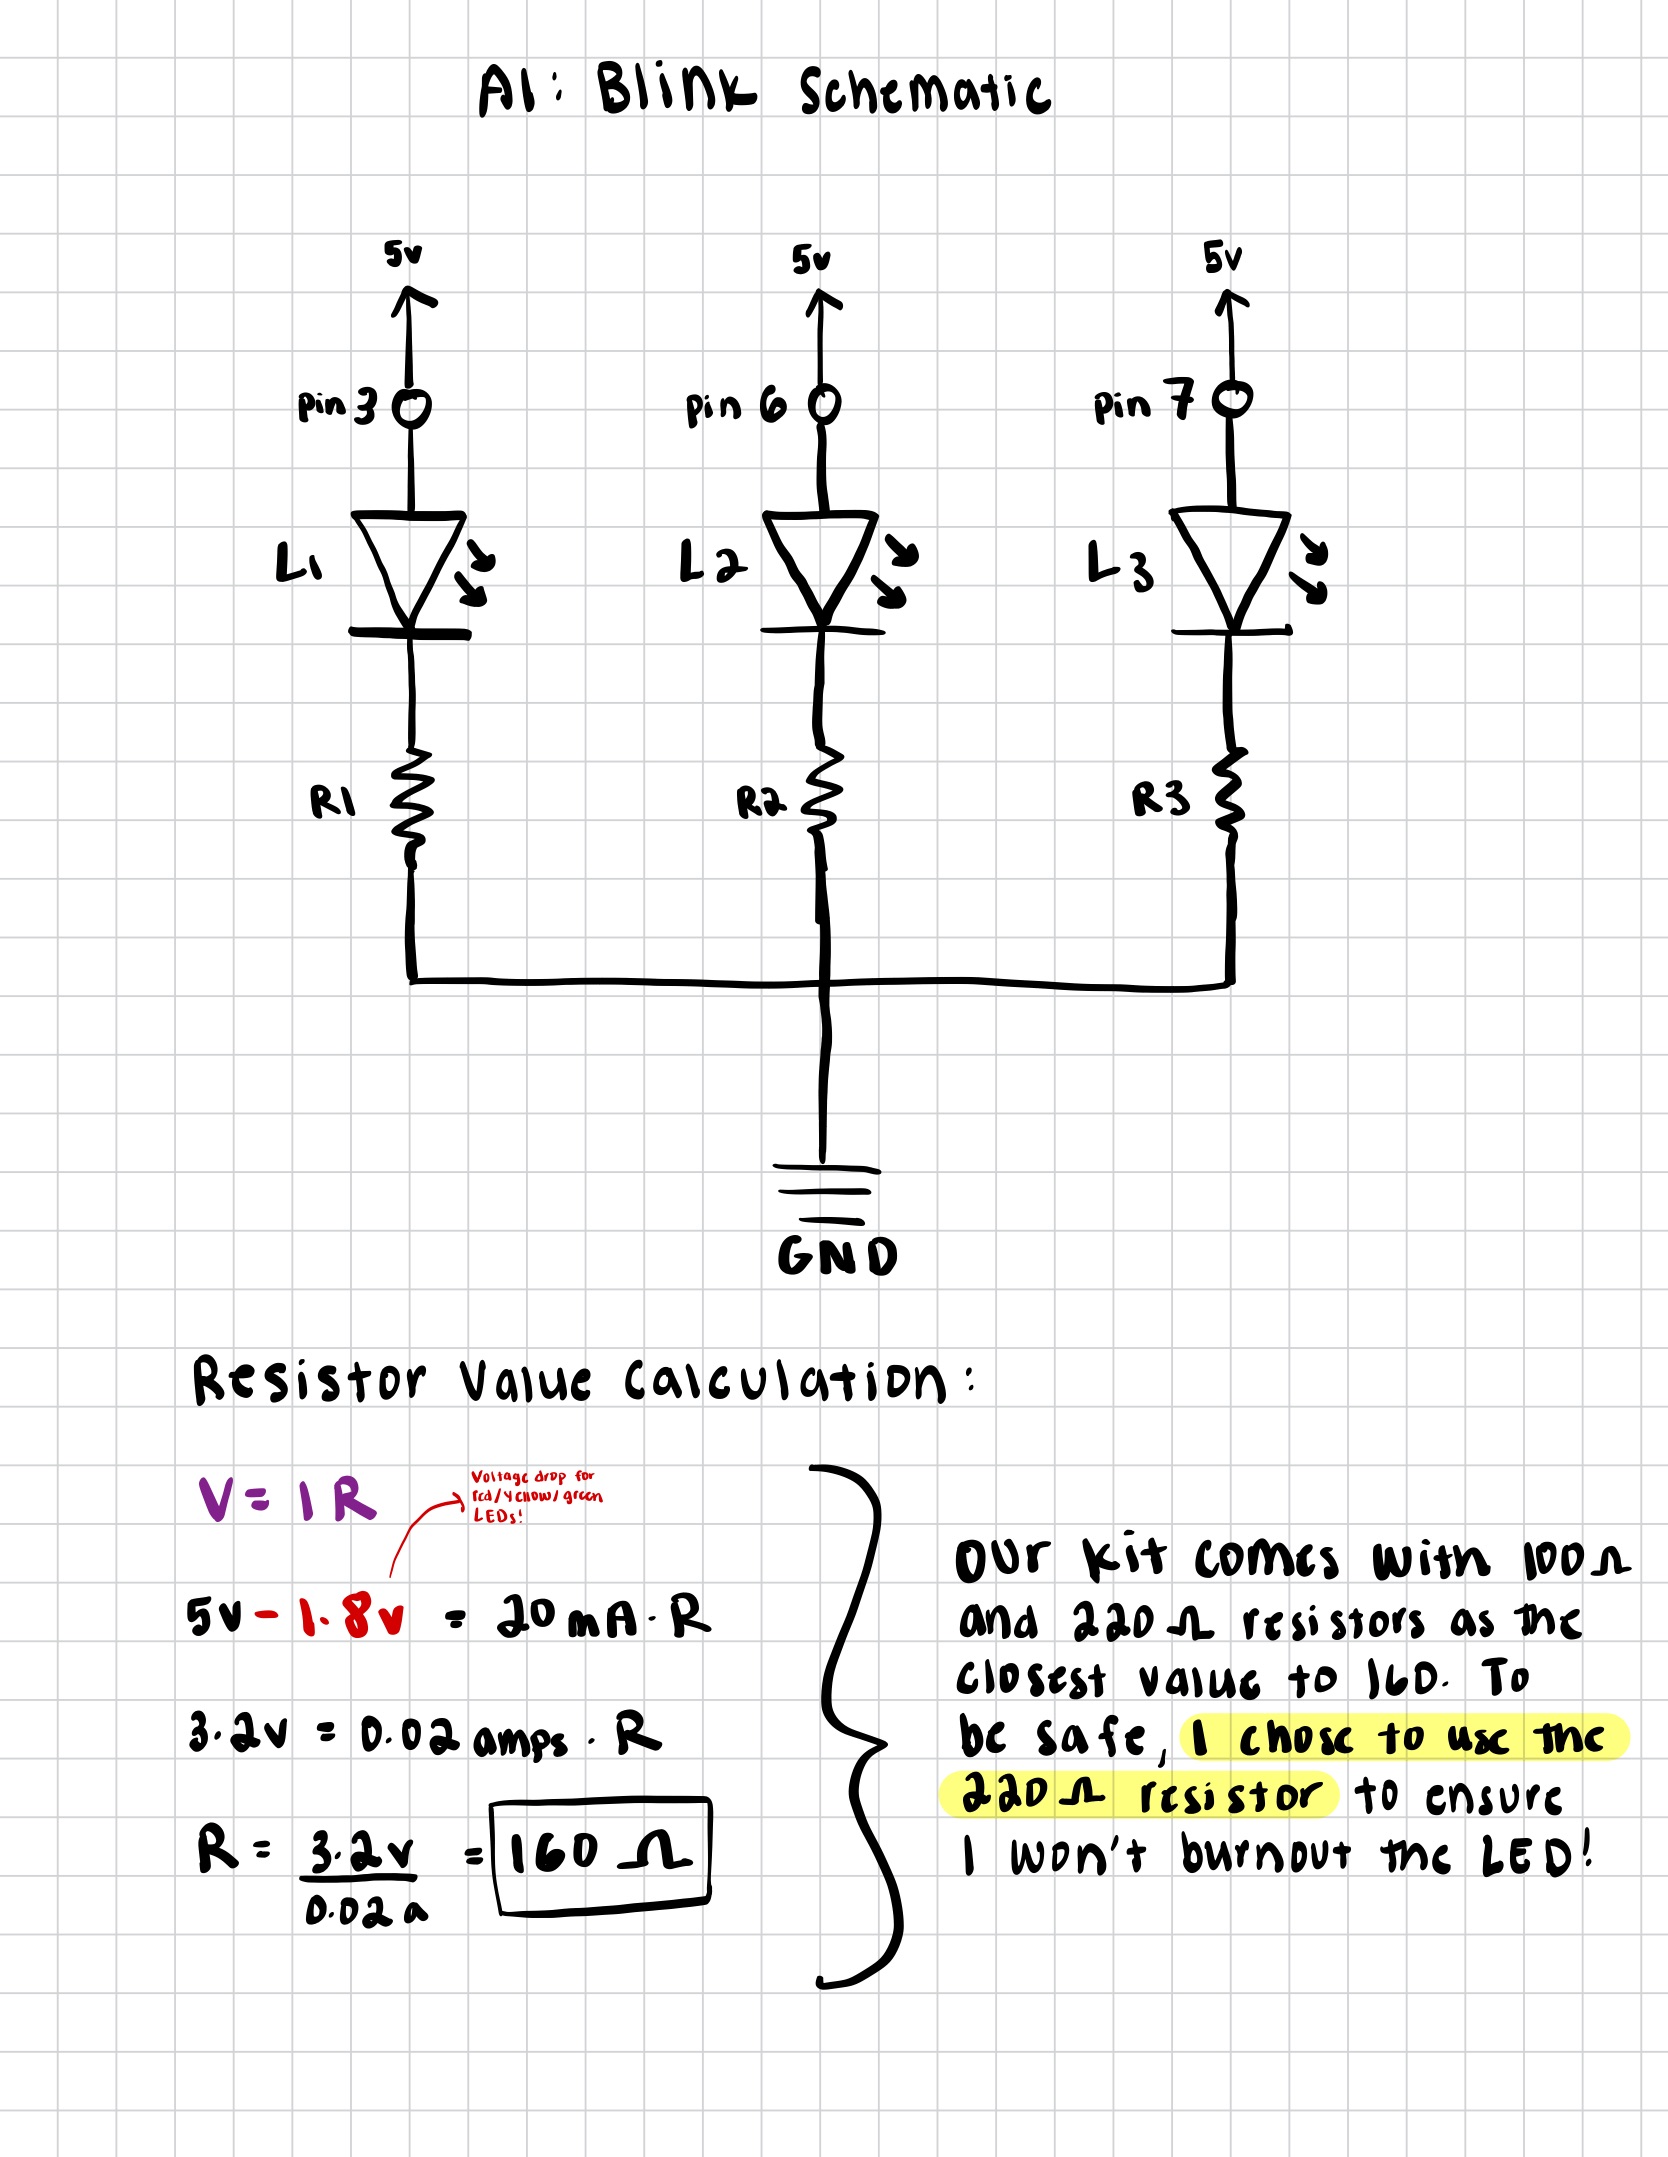 A1: Blink Schematic
5v 5v 5v
pin 3 pin 6 pin 7
L1 L2 L3
R1 R2 R3
GND
Resistor Value Calculation:
V = IR
Voltage drop for
red/yellow/green
LEDs!
5v - 1.8v = 20mA · R
3.2v = 0.02 amps · R
R = 3.2v / 0.02a = 160 Ω
Our kit comes with 100Ω
and 220Ω resistors as the
closest value to 160. To
be safe, I chose to use the
220Ω resistor to ensure
I won't burnout the LED!